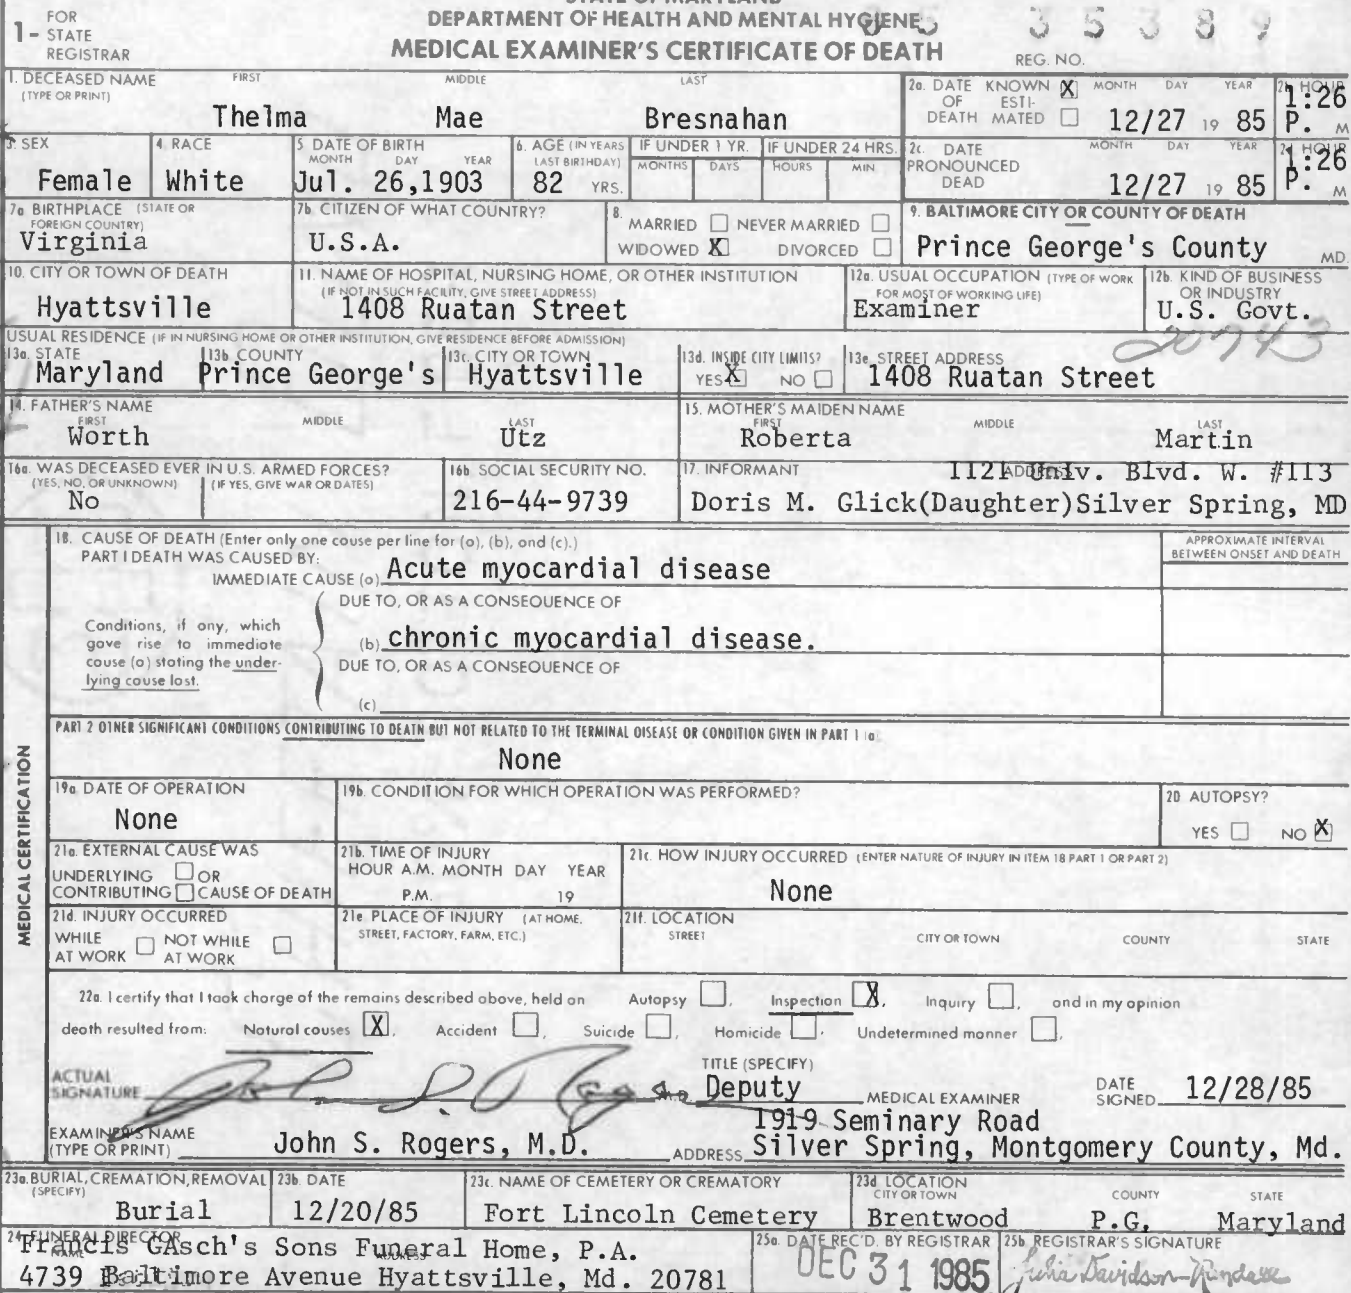 STATE OF MARYLAND
DEPARTMENT OF HEALTH AND MENTAL HYGIENE
MEDICAL EXAMINER'S CERTIFICATE OF DEATH
1- FOR STATE REGISTRAR
85 35389
REG. NO.
1. DECEASED NAME (TYPE OR PRINT) FIRST MIDDLE LAST
Thelma Mae Bresnahan
2a. DATE OF DEATH KNOWN X ESTIMATED MONTH DAY YEAR 2b. HOUR
12/27 19 85 1:26 P. M
3. SEX 4. RACE 5. DATE OF BIRTH MONTH DAY YEAR 6. AGE (IN YEARS LAST BIRTHDAY) IF UNDER 1 YR. MONTHS DAYS IF UNDER 24 HRS. HOURS MIN
Female White Jul. 26,1903 82 YRS.
2c. DATE PRONOUNCED DEAD MONTH DAY YEAR HOUR
12/27 19 85 1:26 P. M
7a BIRTHPLACE (STATE OR FOREIGN COUNTRY) 7b. CITIZEN OF WHAT COUNTRY?
Virginia U.S.A.
8. MARRIED NEVER MARRIED
WIDOWED X DIVORCED
9. BALTIMORE CITY OR COUNTY OF DEATH
Prince George's County MD.
10. CITY OR TOWN OF DEATH
Hyattsville
11. NAME OF HOSPITAL, NURSING HOME, OR OTHER INSTITUTION
(IF NOT IN SUCH FACILITY, GIVE STREET ADDRESS)
1408 Ruatan Street
12a. USUAL OCCUPATION (TYPE OF WORK FOR MOST OF WORKING LIFE)
Examiner
12b. KIND OF BUSINESS OR INDUSTRY
U.S. Govt.
20743
USUAL RESIDENCE (IF IN NURSING HOME OR OTHER INSTITUTION, GIVE RESIDENCE BEFORE ADMISSION)
13a. STATE 13b. COUNTY 13c. CITY OR TOWN 13d. INSIDE CITY LIMITS? 13e. STREET ADDRESS
Maryland Prince George's Hyattsville YES X NO 1408 Ruatan Street
14. FATHER'S NAME FIRST MIDDLE LAST
Worth Utz
15. MOTHER'S MAIDEN NAME FIRST MIDDLE LAST
Roberta Martin
16a. WAS DECEASED EVER IN U.S. ARMED FORCES?
(YES, NO, OR UNKNOWN) (IF YES, GIVE WAR OR DATES)
No
16b. SOCIAL SECURITY NO.
216-44-9739
17. INFORMANT ADDRESS
1121 Univ. Blvd. W. #113
Doris M. Glick(Daughter)Silver Spring, MD
MEDICAL CERTIFICATION
18. CAUSE OF DEATH (Enter only one cause per line for (a), (b), and (c).)
APPROXIMATE INTERVAL BETWEEN ONSET AND DEATH
PART I DEATH WAS CAUSED BY:
IMMEDIATE CAUSE (a) Acute myocardial disease
DUE TO, OR AS A CONSEQUENCE OF
Conditions, if any, which gave rise to immediate cause (a) stating the underlying cause last.
(b) chronic myocardial disease.
DUE TO, OR AS A CONSEQUENCE OF
(c)
PART 2 OTHER SIGNIFICANT CONDITIONS CONTRIBUTING TO DEATH BUT NOT RELATED TO THE TERMINAL DISEASE OR CONDITION GIVEN IN PART 1 (a)
None
19a. DATE OF OPERATION
None
19b. CONDITION FOR WHICH OPERATION WAS PERFORMED?
20 AUTOPSY?
YES NO X
21a. EXTERNAL CAUSE WAS
UNDERLYING OR
CONTRIBUTING CAUSE OF DEATH
21b. TIME OF INJURY
HOUR A.M. MONTH DAY YEAR
P.M. 19
21c. HOW INJURY OCCURRED (ENTER NATURE OF INJURY IN ITEM 18 PART 1 OR PART 2)
None
21d. INJURY OCCURRED
WHILE AT WORK NOT WHILE AT WORK
21e PLACE OF INJURY (AT HOME, STREET, FACTORY, FARM, ETC.)
21f. LOCATION
STREET CITY OR TOWN COUNTY STATE
22a. I certify that I took charge of the remains described above, held an Autopsy , Inspection X, Inquiry , and in my opinion
death resulted from: Natural causes X, Accident , Suicide , Homicide , Undetermined manner .
ACTUAL SIGNATURE John S. Rogers
TITLE (SPECIFY)
Deputy MEDICAL EXAMINER
DATE SIGNED 12/28/85
EXAMINER'S NAME (TYPE OR PRINT) John S. Rogers, M.D.
1919 Seminary Road
ADDRESS Silver Spring, Montgomery County, Md.
23a. BURIAL, CREMATION, REMOVAL (SPECIFY) 23b. DATE 23c. NAME OF CEMETERY OR CREMATORY 23d LOCATION CITY OR TOWN COUNTY STATE
Burial 12/20/85 Fort Lincoln Cemetery Brentwood P.G. Maryland
24. FUNERAL DIRECTOR NAME ADDRESS
Francis GAsch's Sons Funeral Home, P.A.
4739 Baltimore Avenue Hyattsville, Md. 20781
25a. DATE REC'D. BY REGISTRAR
DEC 31 1985
25b. REGISTRAR'S SIGNATURE
Julia Davidson-Randall